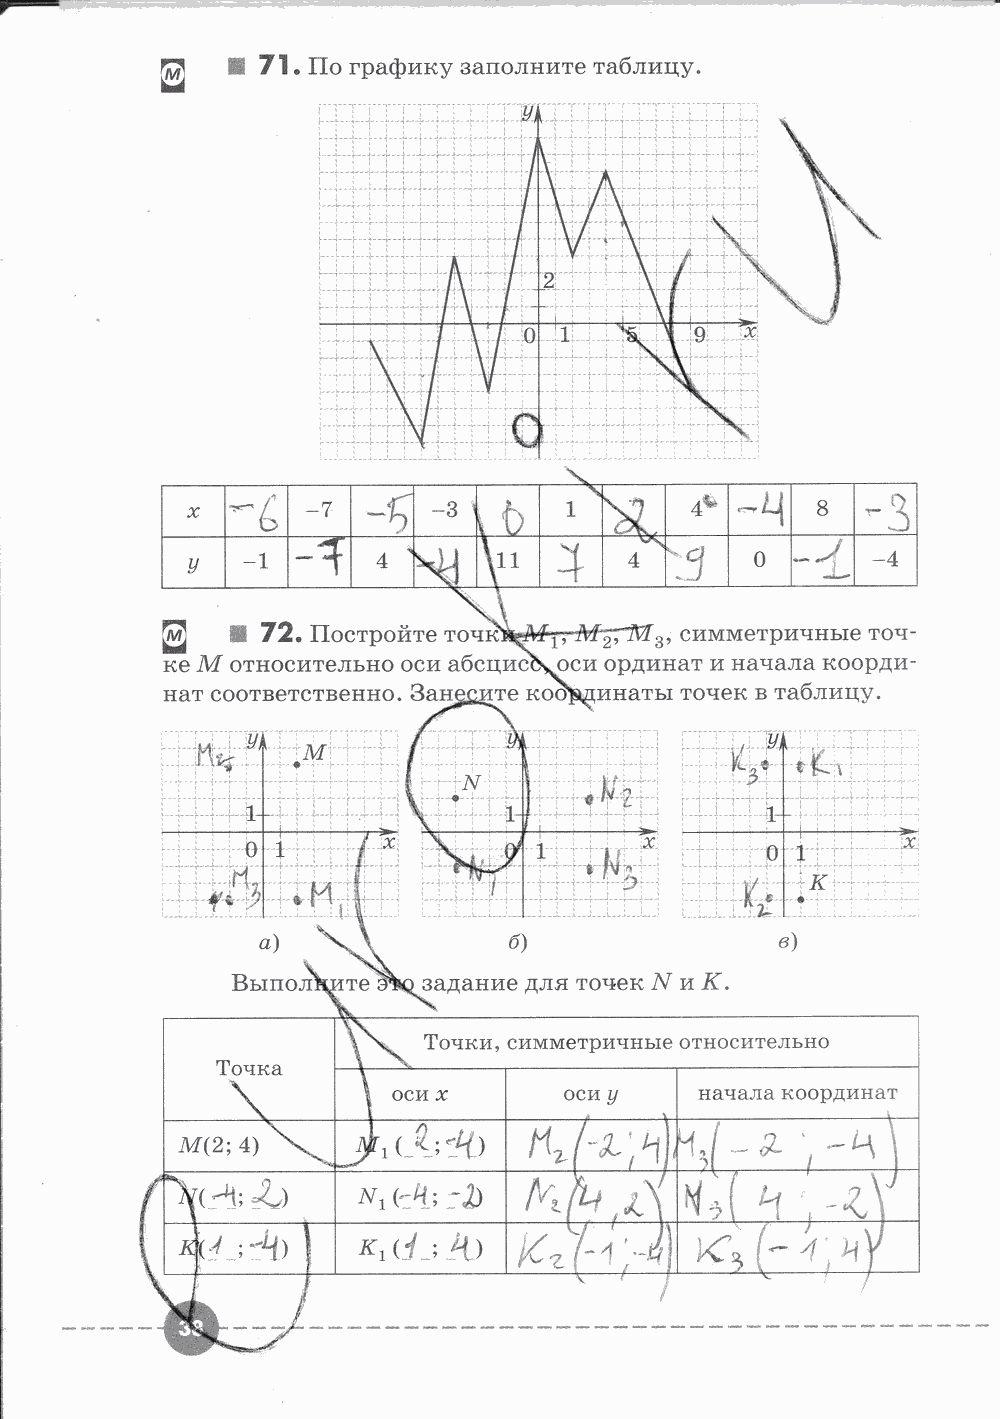 М 71. По графику заполните таблицу.
y
2
0 1 5 9 x
x -6 -7 -5 -3 0 1 2 4 -4 8 -3
y -1 -7 4 -4 11 7 4 9 0 -1 -4
М 72. Постройте точки M₁, M₂, M₃, симметричные точ-
ке M относительно оси абсцисс, оси ординат и начала коорди-
нат соответственно. Занесите координаты точек в таблицу.
M₂ y M
1
0 1 x
M₃ M₁
а)
N y N₂
1
0 1 x
N₁ N₃
б)
K₃ y K₁
1
0 1 x
K₂ K
в)
Выполните это задание для точек N и K.
Точка
Точки, симметричные относительно
оси x оси y начала координат
M(2; 4) M₁(2; -4) M₂(-2; 4) M₃(-2; -4)
N(-4; 2) N₁(-4; -2) N₂(4, 2) N₃(4; -2)
K(1; -4) K₁(1; 4) K₂(-1; -4) K₃(-1; 4)
38